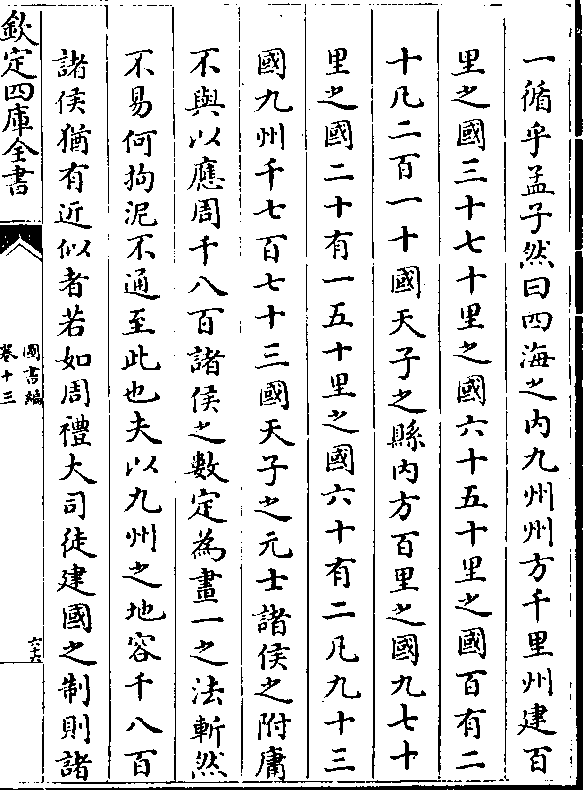 一循乎孟子然曰四海之内九州州方千里州建百
里之國三十七十里之國六十五十里之國百有二
十凡二百一十國天子之縣内方百里之國九七十
里之國二十有一五十里之國六十有二凡九十三
國九州千七百七十三國天子之元士諸侯之附庸
不與以應周千八百諸侯之數定為畫一之法斬然
不易何拘泥不通至此也夫以九州之地容千八百
諸侯猶有近似者若如周禮大司徒建國之制則諸
欽定四庫全書
圖書編
卷十三
六十六